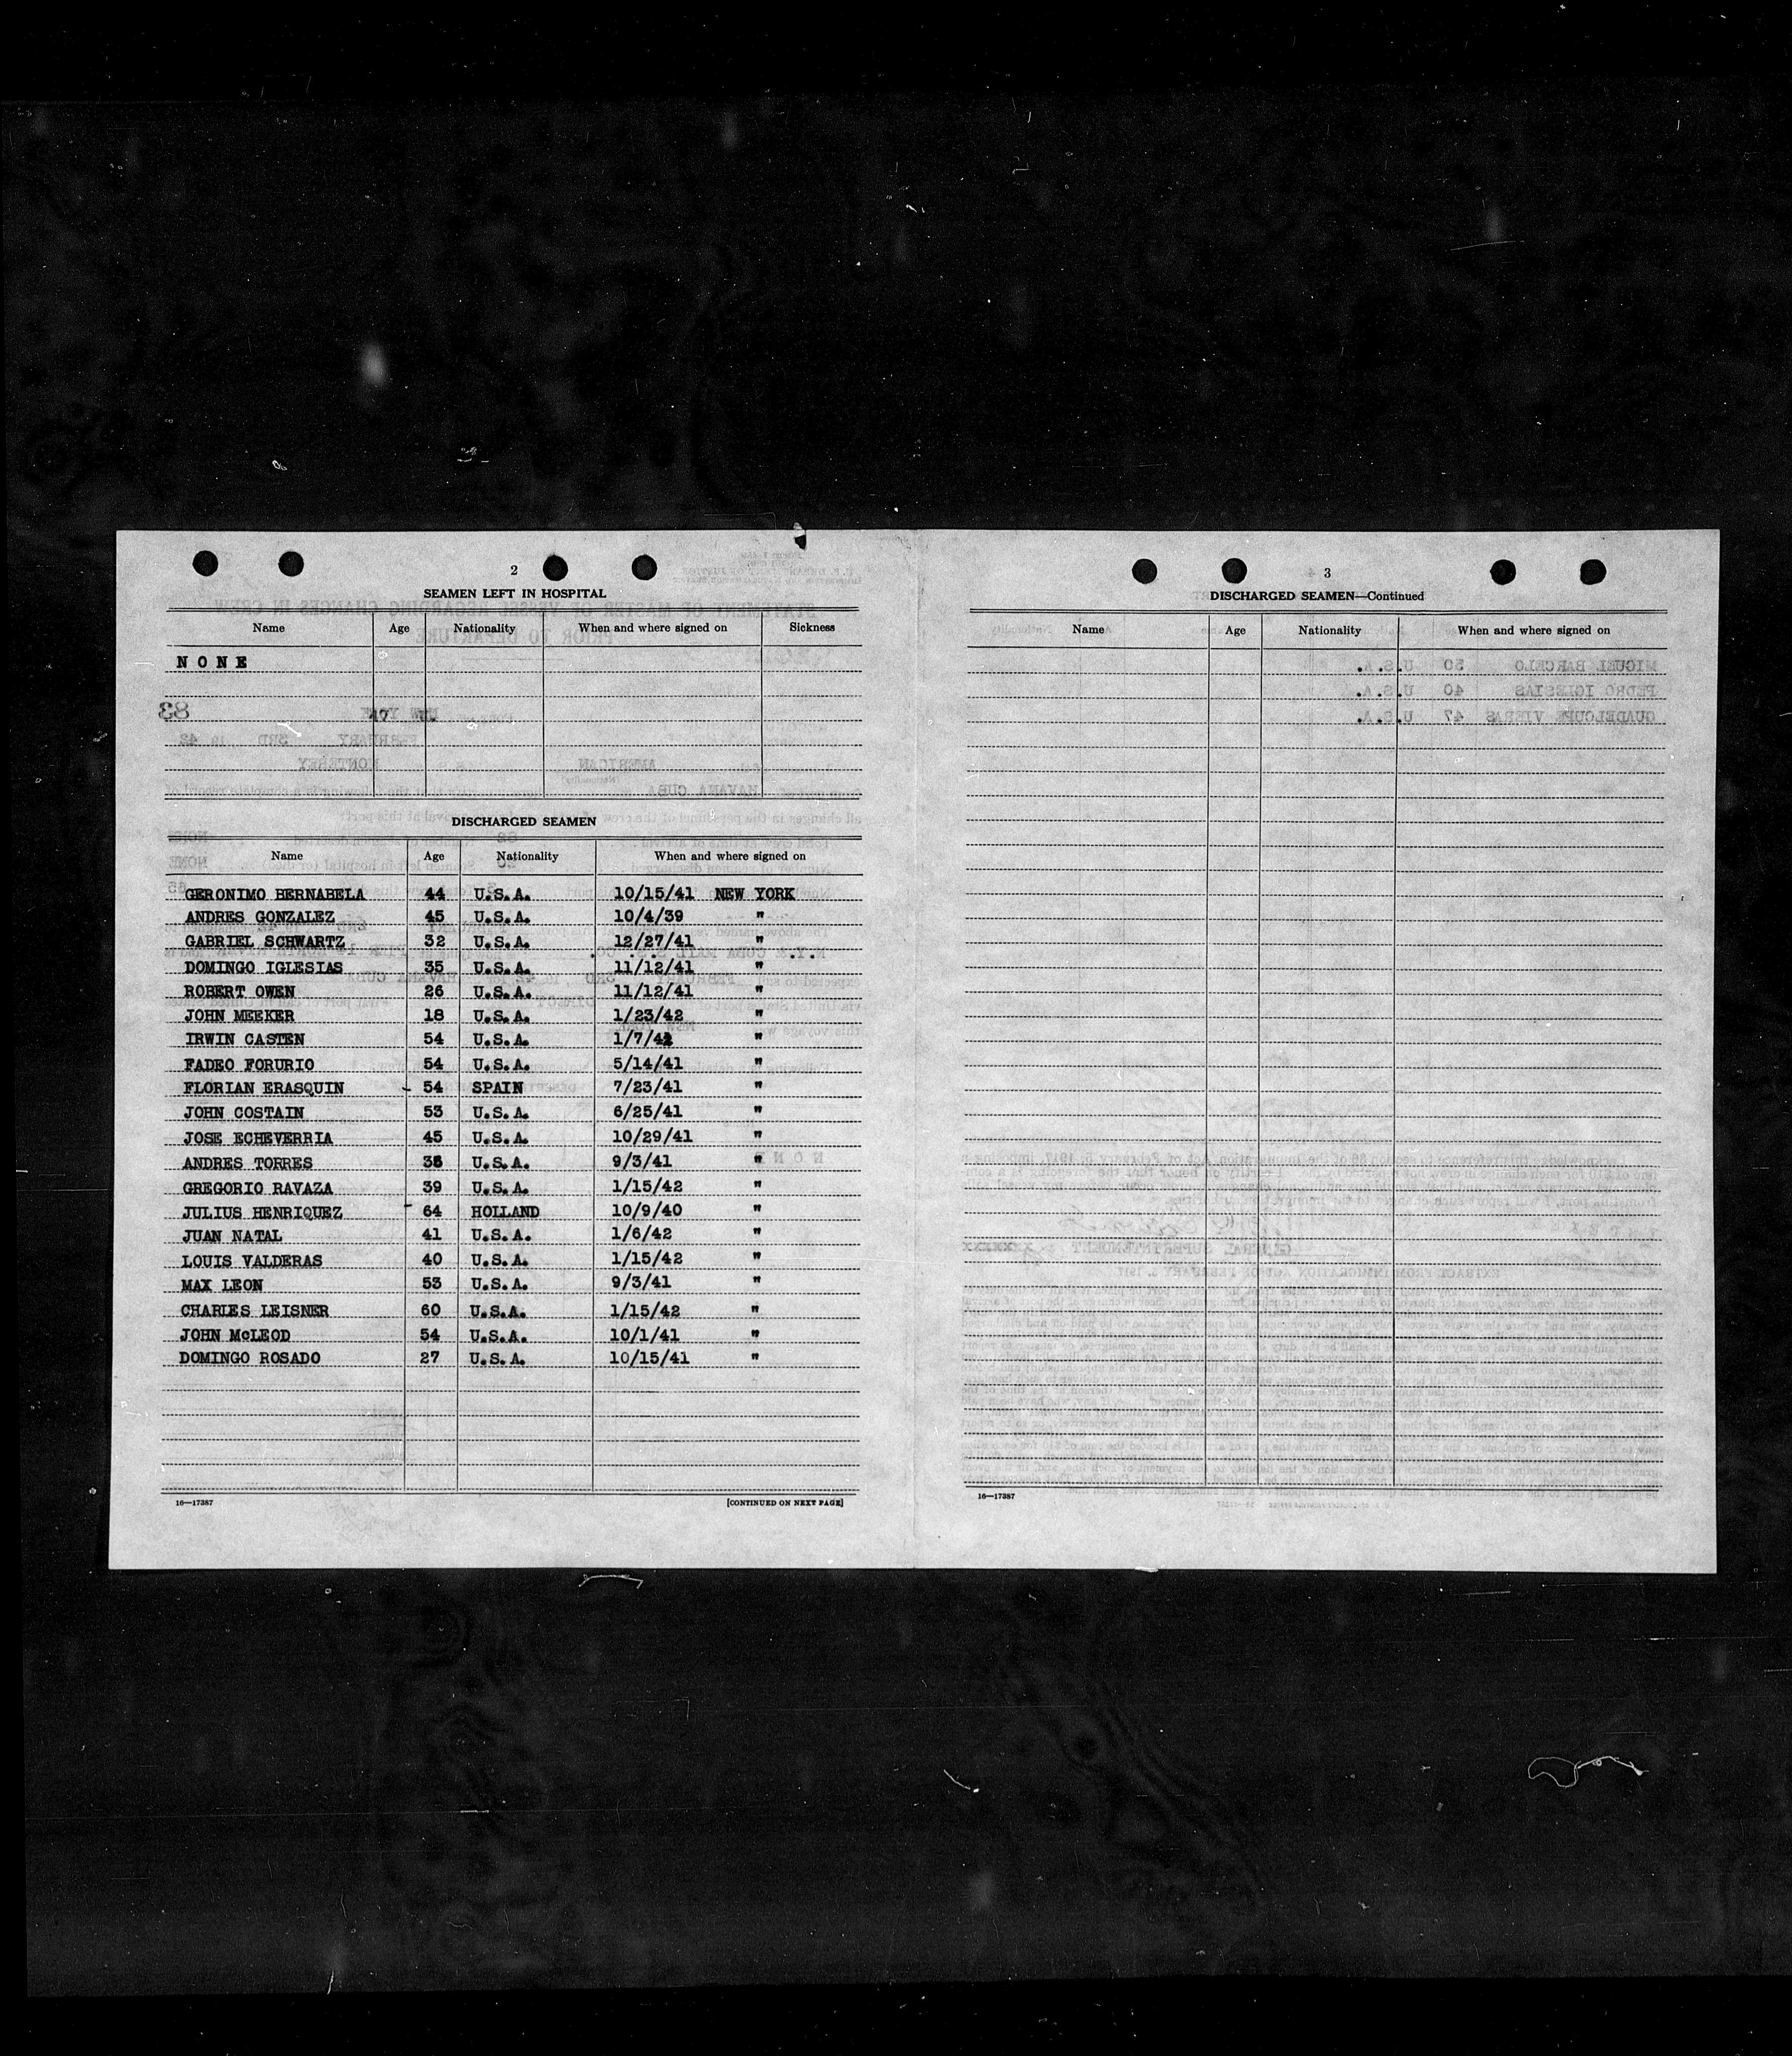 2
SEAMEN LEFT IN HOSPITAL
Name Age Nationality When and where signed on Sickness
N O N E
DISCHARGED SEAMEN
Name Age Nationality When and where signed on
GERONIMO BERNABELA 44 U.S.A. 10/15/41 NEW YORK
ANDRES GONZALEZ 45 U.S.A. 10/4/39 "
GABRIEL SCHWARTZ 32 U.S.A. 12/27/41 "
DOMINGO IGLESIAS 35 U.S.A. 11/12/41 "
ROBERT OWEN 26 U.S.A. 11/12/41 "
JOHN MEEKER 18 U.S.A. 1/23/42 "
IRWIN CASTEN 54 U.S.A. 1/7/42 "
FADEO FORURIO 54 U.S.A. 5/14/41 "
FLORIAN ERASQUIN - 54 SPAIN 7/23/41 "
JOHN COSTAIN 53 U.S.A. 6/25/41 "
JOSE ECHEVERRIA 45 U.S.A. 10/29/41 "
ANDRES TORRES U.S.A. 9/3/41 "
GREGORIO RAVAZA 39 U.S.A. 1/15/42 "
JULIUS HENRIQUEZ - 64 HOLLAND 10/9/40 "
JUAN NATAL 41 U.S.A. 1/6/42 "
LOUIS VALDERAS 40 U.S.A. 1/15/42 "
MAX LEON 53 U.S.A. 9/3/41 "
CHARLES LEISNER 60 U.S.A. 1/15/42 "
JOHN McLEOD 54 U.S.A. 10/1/41 "
DOMINGO ROSADO 27 U.S.A. 10/15/41 "
16—17387 [CONTINUED ON NEXT PAGE]
3
DISCHARGED SEAMEN—Continued
Name Age Nationality When and where signed on
16—17387